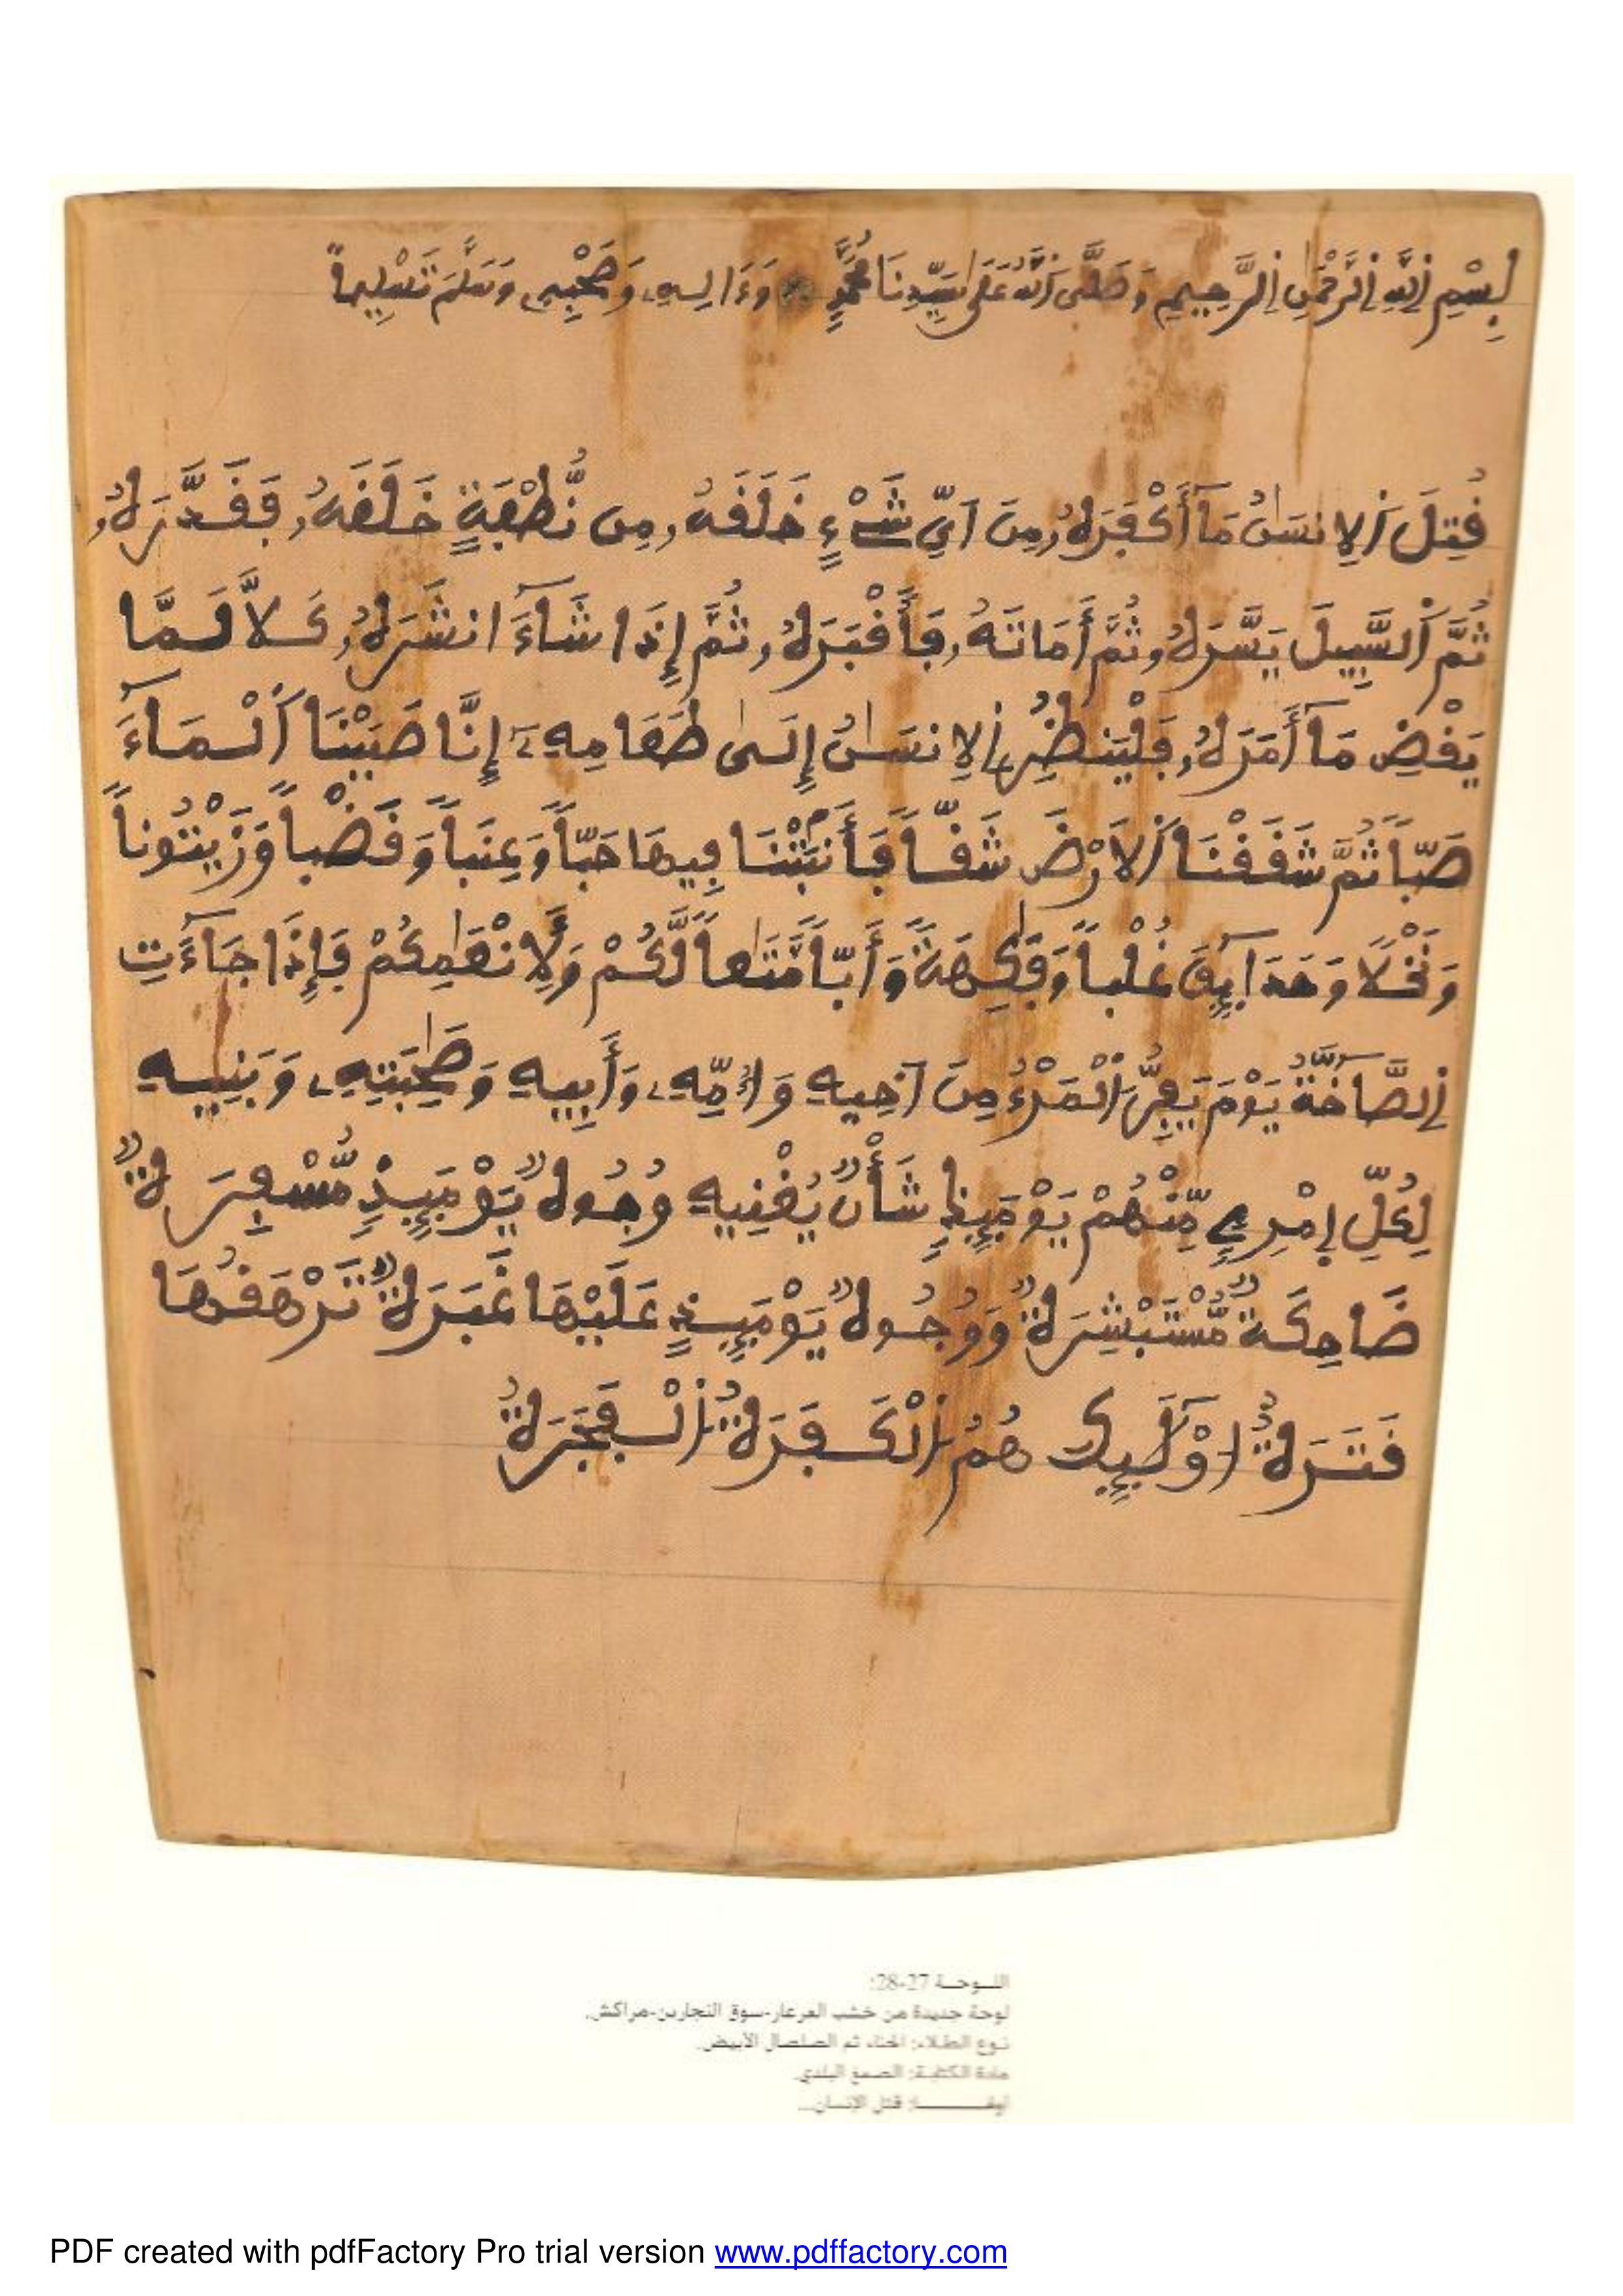 بِسْمِ اِ۬للَّهِ اِ۬لرَّحْمَٰنِ اِ۬لرَّحِيمِ وَصَلَّى اَ۬للَّهُ عَلَىٰ سَيِّدِنَا مُحَمَّدٍ وَءَالِهِۦ وَصَحْبِهِۦ وَسَلَّمَ تَسْلِيماً
قُتِلَ اَ۬لِانسَٰنُ مَآ أَكْفَرَهُۥ مِنَ اَيِّ شَےْءٍ خَلَقَهُۥ مِن نُّطْفَةٍ خَلَقَهُۥ فَقَدَّرَهُۥ
ثُمَّ اَ۬لسَّبِيلَ يَسَّرَهُۥ ثُمَّ أَمَاتَهُۥ فَأَقْبَرَهُۥ ثُمَّ إِذَا شَآءَ انشَرَهُۥ كَلَّا لَمَّا
يَقْضِ مَآ أَمَرَهُۥ فَلْيَنظُرِ اِ۬لِانسَٰنُ إِلَىٰ طَعَامِهِۦٓ إِنَّا صَبَبْنَا اَ۬لْمَآءَ
صَبّاً ثُمَّ شَقَقْنَا اَ۬لَارْضَ شَقّاً فَأَنۢبَتْنَا فِيهَا حَبّاً وَعِنَباً وَقَضْباً وَزَيْتُوناً
وَنَخْلًا وَحَدَآئِقَ غُلْباً وَفَٰكِهَةً وَأَبّاً مَّتَٰعاً لَّكُمْ وَلِأَنْعَٰمِكُمْ فَإِذَا جَآءَتِ
اِ۬لصَّآخَّةُ يَوْمَ يَفِرُّ اُ۬لْمَرْءُ مِنَ اَخِيهِ وَأُمِّهِۦ وَأَبِيهِ وَصَٰحِبَتِهِۦ وَبَنِيهِ
لِكُلِّ اِ۪مْرِےٕٖ مِّنْهُمْ يَوْمَئِذٍ شَأْنٌ يُغْنِيهِ وُجُوهٌ يَوْمَئِذٍ مُّسْفِرَةٌ
ضَاحِكَةٌ مُّسْتَبْشِرَةٌ وَوُجُوهٌ يَوْمَئِذٍ عَلَيْهَا غَبَرَةٌ تَرْهَقُهَا
قَتَرَةٌ اُوْلَٰٓئِكَ هُمُ اُ۬لْكَفَرَةُ اُ۬لْفَجَرَةُ
اللـوحـة 27-28:
لوحة جديدة من خشب العرعار-سوق النجارين-مراكش.
نـوع الطلاء: الحناء ثم الصلصال الأبيض.
مادة الكتابة: الصمغ البلدي.
أولهـــا: قتل الإنسان...
PDF created with pdfFactory Pro trial version www.pdffactory.com